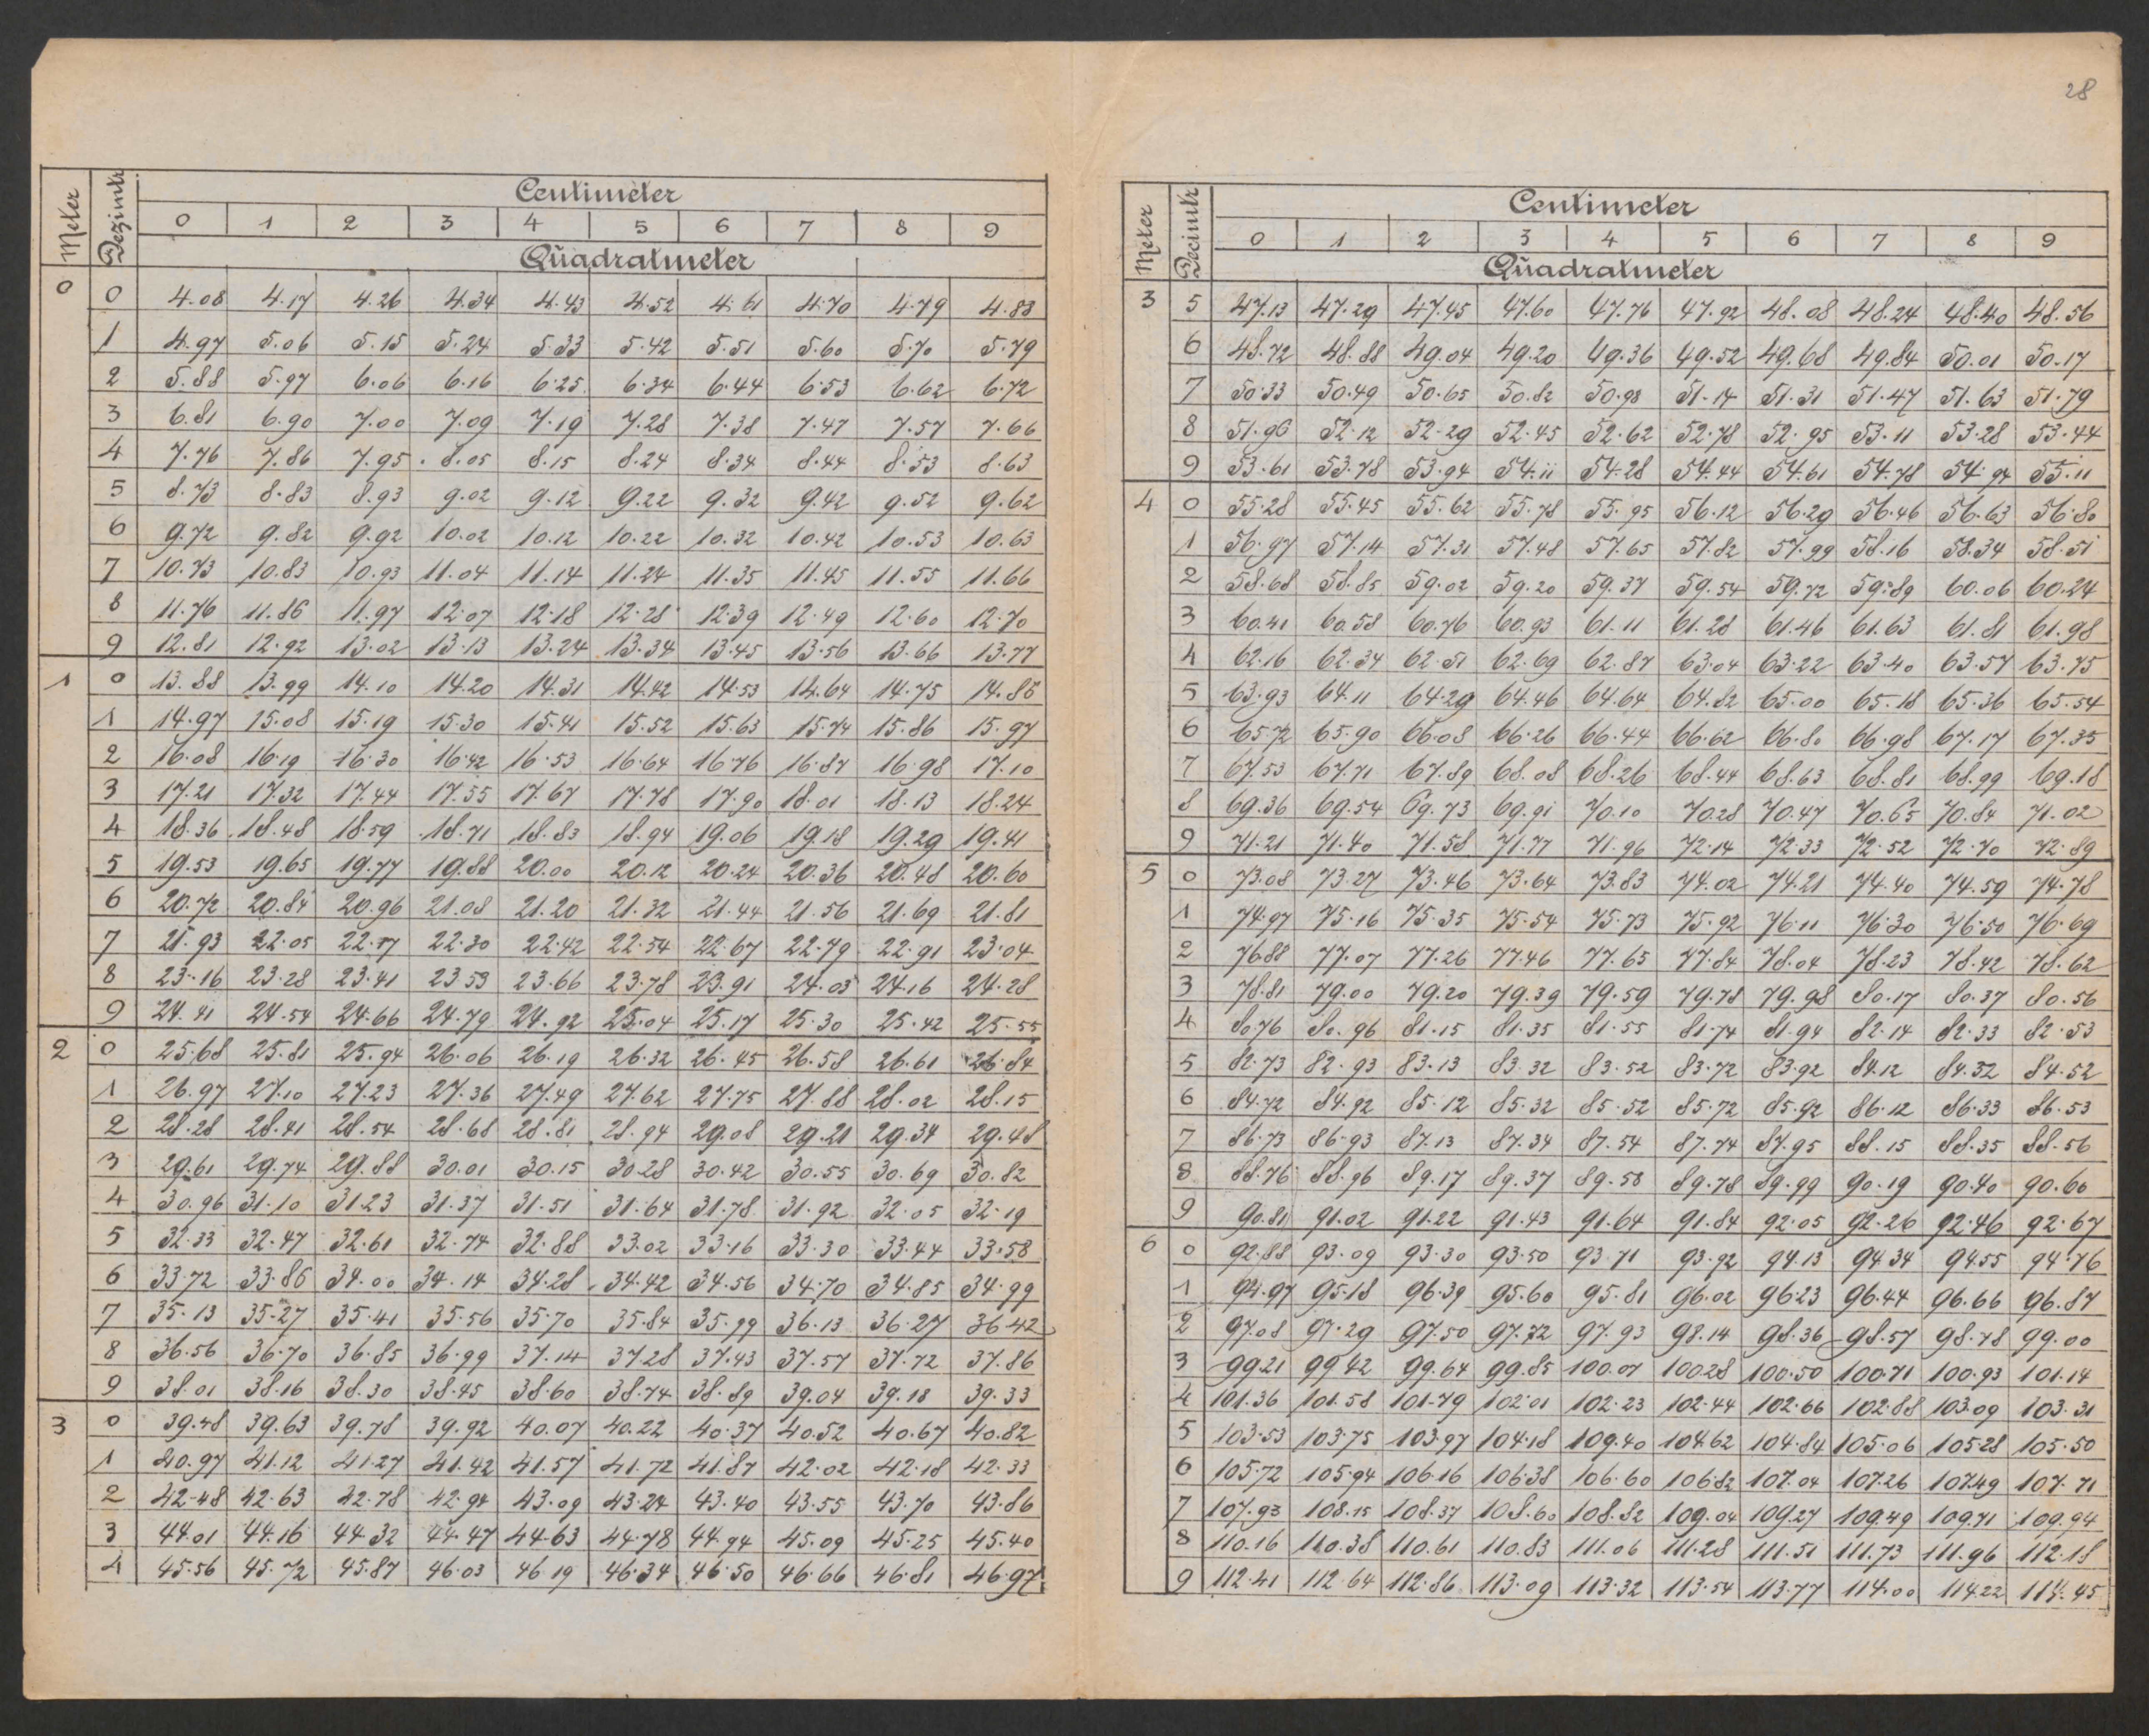 28
Meter Dezimtr Centimeter
0 1 2 3 4 5 6 7 8 9
Quadratmeter
0 0 4.08 4.17 4.26 4.34 4.43 4.52 4.61 4.70 4.79 4.88
1 4.97 5.06 5.15 5.24 5.33 5.42 5.51 5.60 5.70 5.79
2 5.88 5.97 6.06 6.16 6.25 6.34 6.44 6.53 6.62 6.72
3 6.81 6.90 7.00 7.09 7.19 7.28 7.38 7.47 7.57 7.66
4 7.76 7.86 7.95 8.05 8.15 8.24 8.34 8.44 8.53 8.63
5 8.73 8.83 8.93 9.02 9.12 9.22 9.32 9.42 9.52 9.62
6 9.72 9.82 9.92 10.02 10.12 10.22 10.32 10.42 10.53 10.63
7 10.73 10.83 10.93 11.04 11.14 11.24 11.35 11.45 11.55 11.66
8 11.76 11.86 11.97 12.07 12.18 12.28 12.39 12.49 12.60 12.70
9 12.81 12.92 13.02 13.13 13.24 13.34 13.45 13.56 13.66 13.77
1 0 13.88 13.99 14.10 14.20 14.31 14.42 14.53 14.64 14.75 14.86
1 14.97 15.08 15.19 15.30 15.41 15.52 15.63 15.74 15.86 15.97
2 16.08 16.19 16.30 16.42 16.53 16.64 16.76 16.87 16.98 17.10
3 17.21 17.32 17.44 17.55 17.67 17.78 17.90 18.01 18.13 18.24
4 18.36 18.48 18.59 18.71 18.83 18.94 19.06 19.18 19.29 19.41
5 19.53 19.65 19.77 19.88 20.00 20.12 20.24 20.36 20.48 20.60
6 20.72 20.84 20.96 21.08 21.20 21.32 21.44 21.56 21.69 21.81
7 21.93 22.05 22.17 22.30 22.42 22.54 22.67 22.79 22.91 23.04
8 23.16 23.28 23.41 23.53 23.66 23.78 23.91 24.03 24.16 24.28
9 24.41 24.54 24.66 24.79 24.92 25.04 25.17 25.30 25.42 25.55
2 0 25.68 25.81 25.94 26.06 26.19 26.32 26.45 26.58 26.61 26.84
1 26.97 27.10 27.23 27.36 27.49 27.62 27.75 27.88 28.02 28.15
2 28.28 28.41 28.54 28.68 28.81 28.94 29.08 29.21 29.34 29.48
3 29.61 29.74 29.88 30.01 30.15 30.28 30.42 30.55 30.69 30.82
4 30.96 31.10 31.23 31.37 31.51 31.64 31.78 31.92 32.05 32.19
5 32.33 32.47 32.61 32.74 32.88 33.02 33.16 33.30 33.44 33.58
6 33.72 33.86 34.00 34.14 34.28 34.42 34.56 34.70 34.85 34.99
7 35.13 35.27 35.41 35.56 35.70 35.84 35.99 36.13 36.27 36.42
8 36.56 36.70 36.85 36.99 37.14 37.28 37.43 37.57 37.72 37.86
9 38.01 38.16 38.30 38.45 38.60 38.74 38.89 39.04 39.18 39.33
3 0 39.48 39.63 39.78 39.92 40.07 40.22 40.37 40.52 40.67 40.82
1 40.97 41.12 41.27 41.42 41.57 41.72 41.87 42.02 42.18 42.33
2 42.48 42.63 42.78 42.94 43.09 43.24 43.40 43.55 43.70 43.86
3 44.01 44.16 44.32 44.47 44.63 44.78 44.94 45.09 45.25 45.40
4 45.56 45.72 45.87 46.03 46.19 46.34 46.50 46.66 46.81 46.97
Meter Decimtr Centimeter
0 1 2 3 4 5 6 7 8 9
Quadratmeter
3 5 47.13 47.29 47.45 47.60 47.76 47.92 48.08 48.24 48.40 48.56
6 48.72 48.88 49.04 49.20 49.36 49.52 49.68 49.84 50.01 50.17
7 50.33 50.49 50.65 50.82 50.98 51.14 51.31 51.47 51.63 51.79
8 51.96 52.12 52.29 52.45 52.62 52.78 52.95 53.11 53.28 53.44
9 53.61 53.78 53.94 54.11 54.28 54.44 54.61 54.78 54.94 55.11
4 0 55.28 55.45 55.62 55.78 55.95 56.12 56.29 56.46 56.63 56.80
1 56.97 57.14 57.31 57.48 57.65 57.82 57.99 58.16 58.34 58.51
2 58.68 58.85 59.02 59.20 59.37 59.54 59.72 59.89 60.06 60.24
3 60.41 60.58 60.76 60.93 61.11 61.28 61.46 61.63 61.81 61.98
4 62.16 62.34 62.51 62.69 62.87 63.04 63.22 63.40 63.57 63.75
5 63.93 64.11 64.29 64.46 64.64 64.82 65.00 65.18 65.36 65.54
6 65.72 65.90 66.08 66.26 66.44 66.62 66.80 66.98 67.17 67.35
7 67.53 67.71 67.89 68.08 68.26 68.44 68.63 68.81 68.99 69.18
8 69.36 69.54 69.73 69.91 70.10 70.28 70.47 70.65 70.84 71.02
9 71.21 71.40 71.58 71.77 71.96 72.14 72.33 72.52 72.70 72.89
5 0 73.08 73.27 73.46 73.64 73.83 74.02 74.21 74.40 74.59 74.78
1 74.97 75.16 75.35 75.54 75.73 75.92 76.11 76.30 76.50 76.69
2 76.88 77.07 77.26 77.46 77.65 77.84 78.04 78.23 78.42 78.62
3 78.81 79.00 79.20 79.39 79.59 79.78 79.98 80.17 80.37 80.56
4 80.76 80.96 81.15 81.35 81.55 81.74 81.94 82.14 82.33 82.53
5 82.73 82.93 83.13 83.32 83.52 83.72 83.92 84.12 84.32 84.52
6 84.72 84.92 85.12 85.32 85.52 85.72 85.92 86.12 86.33 86.53
7 86.73 86.93 87.13 87.34 87.54 87.74 87.95 88.15 88.35 88.56
8 88.76 88.96 89.17 89.37 89.58 89.78 89.99 90.19 90.40 90.60
9 90.81 91.02 91.22 91.43 91.64 91.84 92.05 92.26 92.46 92.67
6 0 92.88 93.09 93.30 93.50 93.71 93.92 94.13 94.34 94.55 94.76
1 94.97 95.18 96.39 95.60 95.81 96.02 96.23 96.44 96.66 96.87
2 97.08 97.29 97.50 97.72 97.93 98.14 98.36 98.57 98.78 99.00
3 99.21 99.42 99.64 99.85 100.07 100.28 100.50 100.71 100.93 101.14
4 101.36 101.58 101.79 102.01 102.23 102.44 102.66 102.88 103.09 103.31
5 103.53 103.75 103.97 104.18 109.40 104.62 104.84 105.06 105.28 105.50
6 105.72 105.94 106.16 106.38 106.60 106.82 107.04 107.26 107.49 107.71
7 107.93 108.15 108.37 108.60 108.82 109.04 109.27 109.49 109.71 109.94
8 110.16 110.38 110.61 110.83 111.06 111.28 111.51 111.73 111.96 112.18
9 112.41 112.64 112.86 113.09 113.32 113.54 113.77 114.00 114.22 114.45